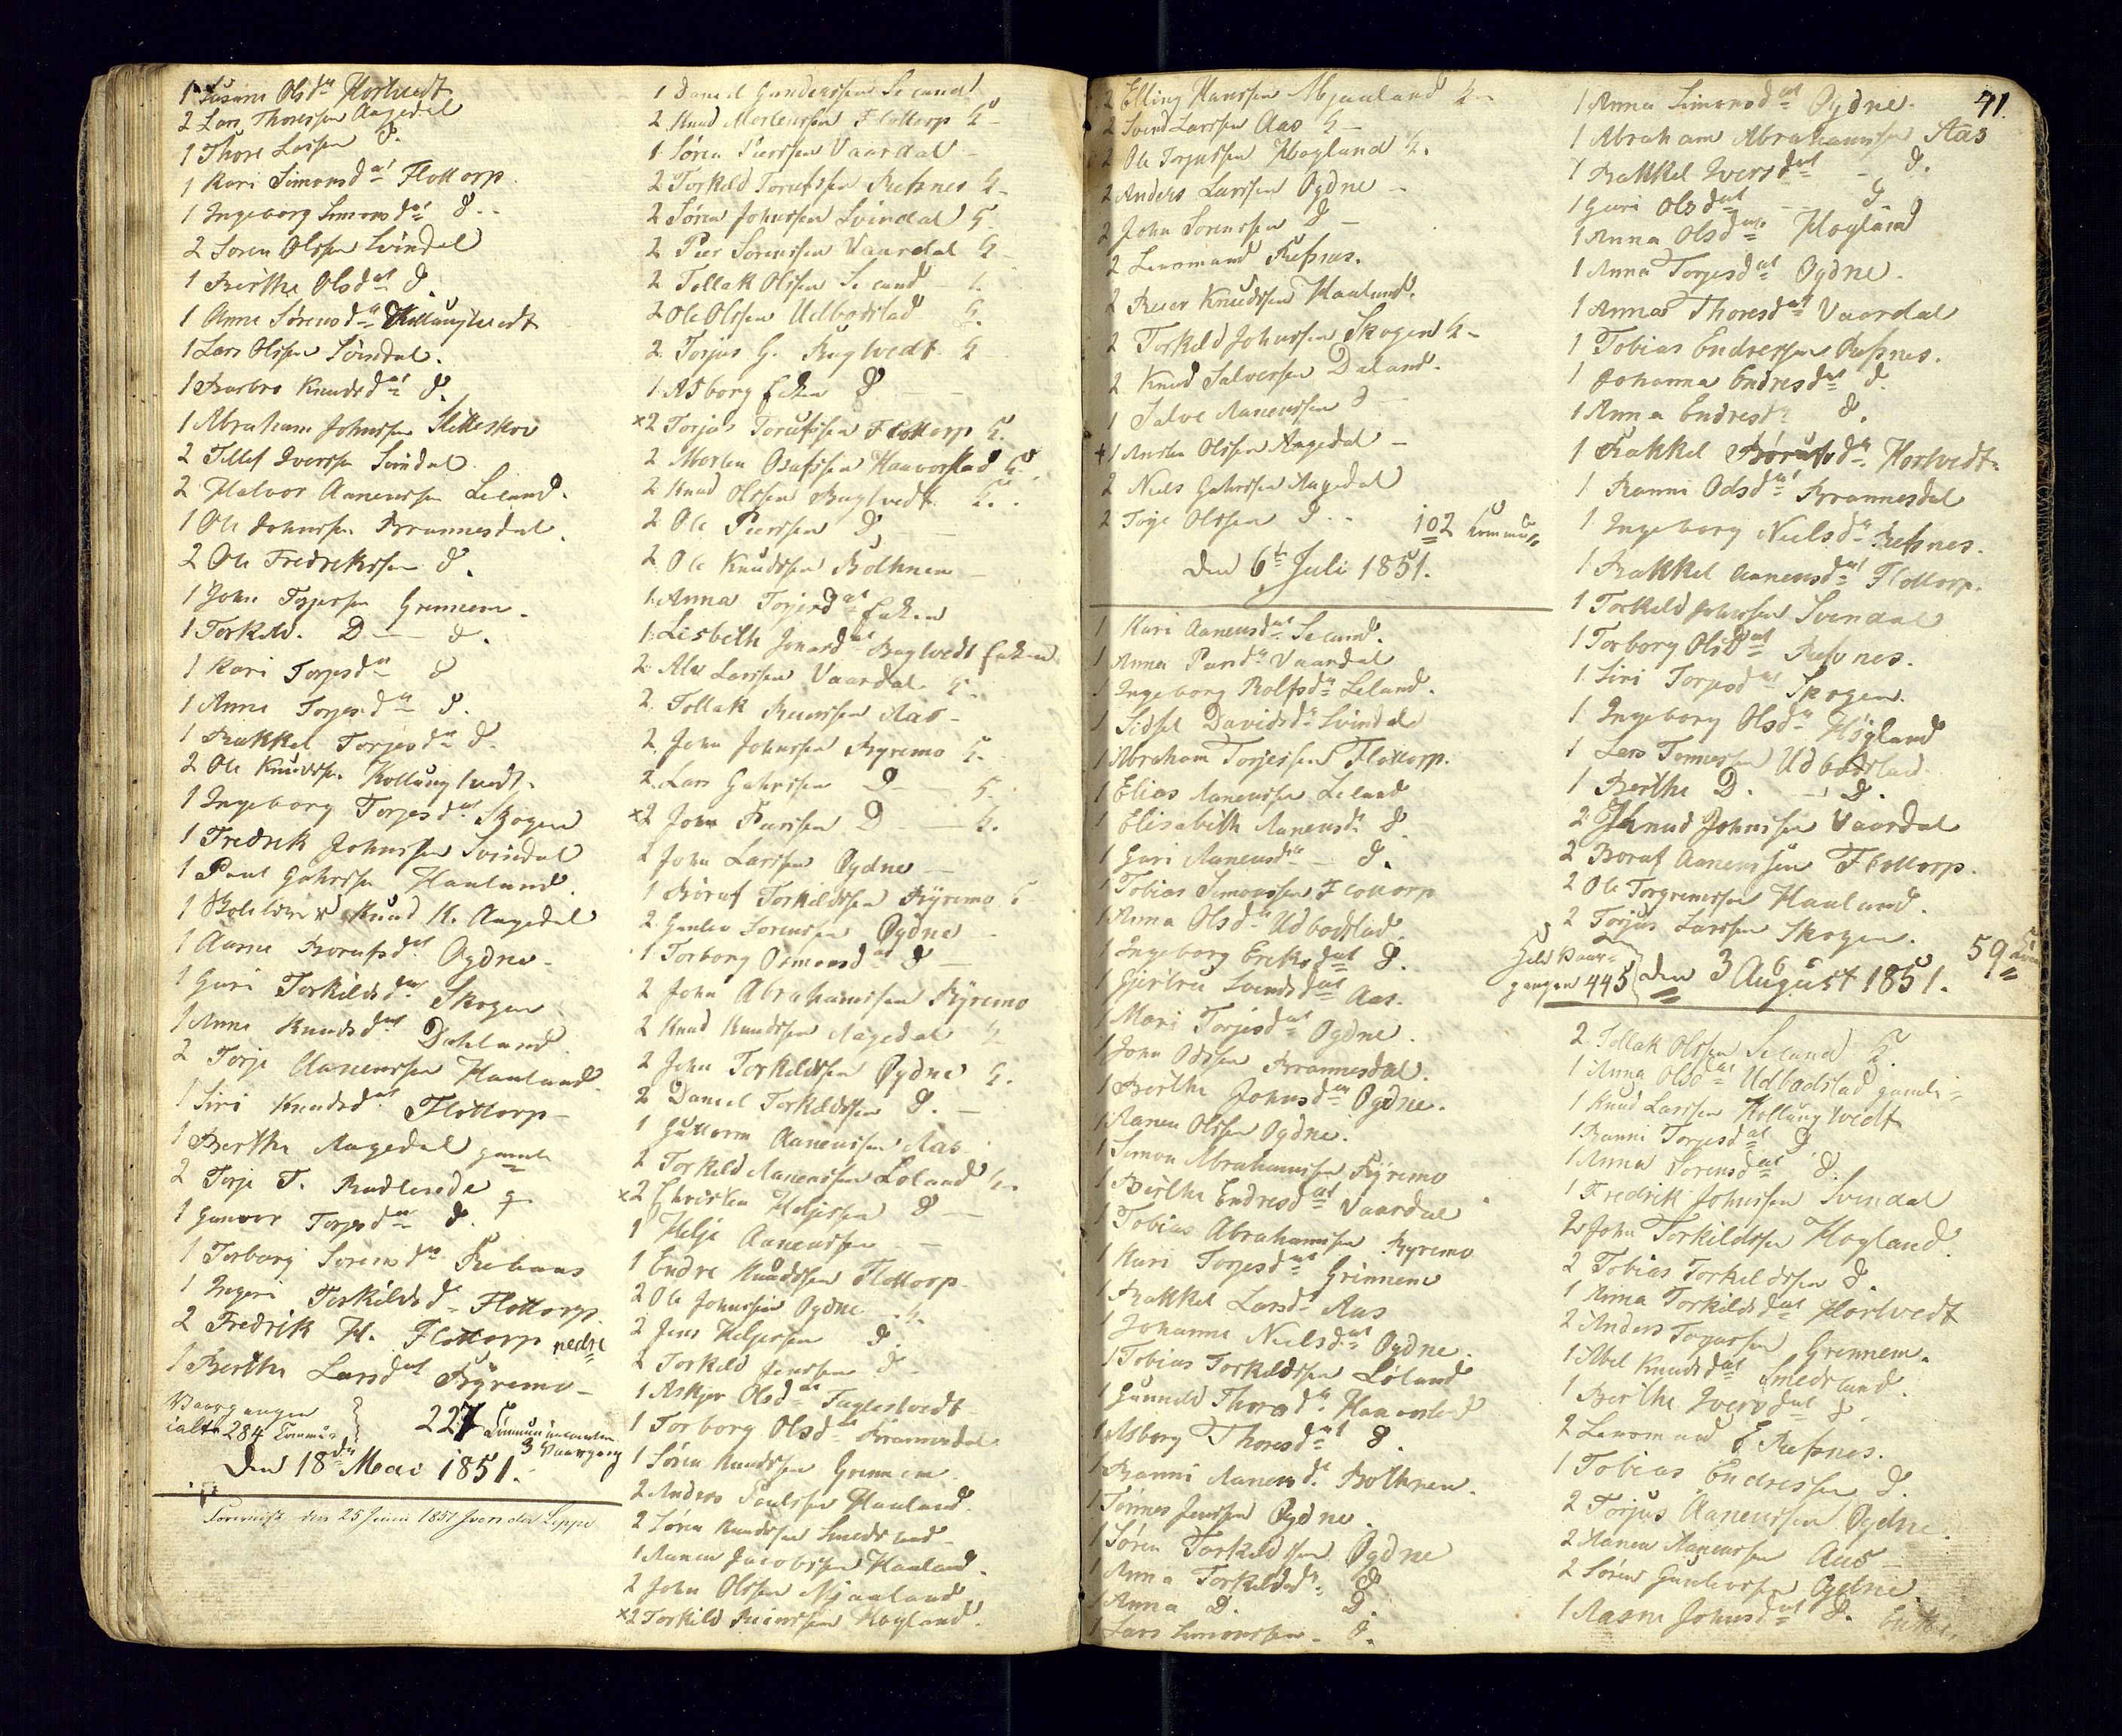 1 Susanne Olsd. Hortvedt
2 Lars Thoressen Aagedal
1 Thore Larsen D.
1 Kari Simonsdat Flottorp
1 Ingeborg Simonsdat D.
2 Søren Olssen Svindal
1 Berthe Olsdat D.
1 Anne Sørensdat Kollungtvedt
1 Lars Olssen Svindal.
1 Barbro Knudsdat D.
1 Abraham Johnssen
2 Tellef Iverssen Svindal
2 Halvor Aanenssen Leland.
1 Ole Johnssen Brannesdal.
2 Ole Fredrikssen D.
1 John Torjessen Grennem.
1 Torkild D — D.
1 Kari Torjesdat D
1 Anne Torjesdat D.
1 Rakkel Torjesdat D.
2 Ole Knudssen Kollungtvedt.
1 Ingeborg Torjesdat Skogen
1 Fredrik Johnssen Svindal
1 Paul Gahrssen Haaland.
1 Knud K. Aagedal
1 Aasne Borufsdat Øydne
1 Guri Torkildsdat Skogen
1 Anne Knudsdat Dahland.
2 Torje Aanenssen Haaland.
1 Siri Knudsdat Flottorp
1 Berthe Aagedal gamle
2 Torje T.
1 Gunvor Torjesdat D.
1 Torborg Sørensdat
1 Ingeri Torkildsd. Flottorp
2 Fredrik H. Flottorp nedre
1 Berthe Larsdat Byremo
Vaargangen
ialt 284 Commun
227 Communicanter
3 Vaargang
Den 18de Mai 1851.
den 25 Juni 1851
1 Daniel Gunderssen Seland
2 Knud Mortenssen Flottorp
1 Søren Peerssen Vaardal
2 Torkild Torufssen Refsnes
2 Søren Johnssen Svindal
2 Peer Sørenssen Vaardal
2 Tollak Olssen Seland
2 Ole Olssen Udbodstad
2 Torjus G. Bugtvedt
1 Asborg Enken D
×2 Torjus Torufssen Flottorp
2 Morten Osufssen Haaverstad
2 Knud Olssen Bugtvedt
2 Ole Peerssen D.
2 Ole Knudssen Bothnen
1 Anna Torjesdat Enken
1 Lisbeth Jonasdat Bugtvedt Enken
2 Alv Larssen Vaardal
2 Tollak Reierssen Aas
2 John Johnssen Byremo
2 Lars Gahrssen D
×2 John Peerssen D
2 John Larssen Øydne
1 Boruf Torkildssen Byremo
2 Gunlev Sørenssen Øydne
1 Torborg Osmondsdat D
2 John Abrahamssen Byremo
2 Knud Knudssen Aagedal
2 John Torkildssen Øydne
2 Daniel Torkildssen D.
1 Guttorm Aanenssen Aas
2 Torkild Aanenssen Loland
×2 Christen Heljessen D
1 Helje Aanenssen
1 Endre Knudssen Flottorp
2 Ole Johnssen Øydne
2 Jens Helgessen D.
2 Torkild Jenssen D
1 Askjer Olsdat Fuglestvedt
1 Torborg Olsdat Brannesdal
1 Søren Knudssen Grennem
2 Anders Paulssen Haaland.
2 Søren Knudssen Smedsland
1 Aanen Jacobssen Haaland.
2 John Olssen Mjaaland
×2 Torkild Reierssen Høgland
2 Elling Hanssen Mjaaland
2 Svend Larssen Aas
2 Ole Torjussen Høgland
2 Anders Larssen Øydne
2 John Sørenssen D
2 Lensmand Refsnes.
2 Reier Knudssen Haaland.
2 Torkild Johnssen Skogen
2 Knud Salvessen Daland.
1 Salve Aanenssen D
+1 Olssen Aagedal
2 Niels Gahrssen Aagedal
2 Torje Olssen D
102 Commun
Den 6te Juli 1851.
1 Kari Aanensdat Seland.
1 Anna Peersdat Vaardal
1 Ingeborg Rolfsdat Leland.
1 Sidsel Davidsdat Svindal
1 Abraham Torjessen Flottorp.
1 Elias Aanenssen Leland
1 Elisabeth Aanensdat D.
1 Guri Aanensdat D.
1 Tobias Simonssen Flottorp
1 Anna Olsdat Udbodstad
1 Ingeborg Eriksdat D.
1 Gjertru Svendsdat Aas.
1 Mari Torjesdat Øydne.
1 John Odssen Brannesdal.
1 Berthe Johnsdat Øydne.
1 Aanen Olssen Øydne.
1 Simon Abrahamssen Byremo
1 Berthe Endresdat Vaardal
1 Tobias Abrahamssen Byremo
1 Kari Torjesdat Grinnem
1 Rakkel Larsdat Aas
1 Johanne Nielsdat Øydne.
1 Tobias Torkildssen Loland
1 Gunnild Thoresdat Haaverstad
1 Asborg Thoresdat D.
1 Ranni Aanensdat Bothnen.
1 Tønnes Jenssen Øydne.
1 Søren Torkildssen Øydne
1 Anna Torkildsdat D
1 Anna D. D.
1 Lars Simonssen D.
41.
1 Anna Simonsdat Øydne.
1 Abraham Abrahamssen Aas
1 Rakkel Iversdat D.
1 Guri Olsdat D.
1 Anna Olsdat Høgland
1 Anna Torjesdat Øydne.
1 Anna Thoresdat Vaardal
1 Tobias Endressen Refsnes.
1 Johanna Endresdat D.
1 Anna Endresdat D.
1 Rakkel Borufsdat Hortvedt
1 Ranni Odsdat Brannesdal
1 Ingeborg Nielsdat Refsnes.
1 Rakkel Aanensdat Flottorp.
1 Torkild Johnssen Svindal
1 Torborg Olsdat Refsnes.
1 Siri Torjesdat Skogen.
1 Ingeborg Olsdat Høgland
1 Lars Tomassen Udbodstad.
1 Berthe D. — D.
2 Knud Johnssen Vaardal
2 Boruf Aanenssen Flottorp.
2 Ole Torgrimssen Haaland.
2 Torjus Larssen Skogen.
59
hele Vaar-
gangen 445 den 3 August 1851.
2 Tollak Olssen Seland
1 Anna Olsdat Udbodstad gamle
1 Knud Larssen Kollungtvedt
1 Ranni Torjesdat D
1 Anna Sørensdat D.
1 Fredrik Johnssen Svindal
2 John Torkildssen Høgland.
2 Tobias Torkildssen D.
1 Anna Torkildsdat Hortvedt
2 Anders Torjussen Grennem.
1 Abel Knudsdat Smedsland.
1 Berthe Iversdat D.
2 Lensmand E Refsnes.
1 Tobias Endressen D.
2 Torjus Aanenssen Øydne.
2 Aanen Aanenssen Aas
2 Søren Gunlevssen Øydne.
1 Aasne Johnsdat D. Enke